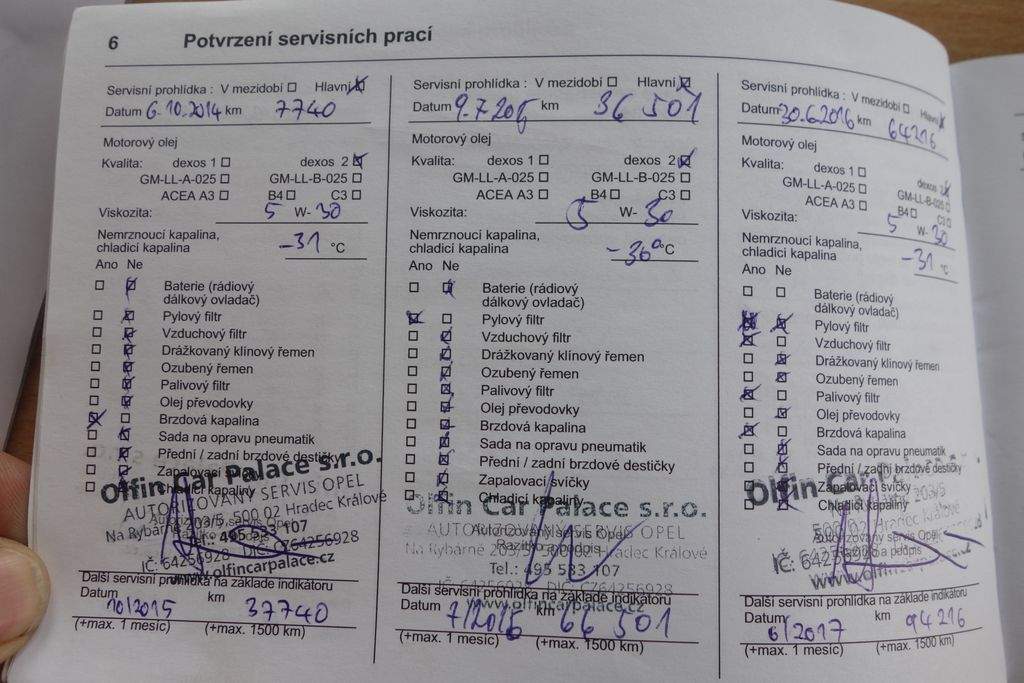 6 Potvrzení servisních prací
Servisní prohlídka : V mezidobí Hlavní
Datum 6.10.2014 km 7740
Motorový olej
Kvalita: dexos 1 dexos 2
GM-LL-A-025 GM-LL-B-025
ACEA A3 B4 C3
Viskozita: 5 W- 30
Nemrznoucí kapalina,
chladicí kapalina -31 °C
Ano Ne
Baterie (rádiový
dálkový ovladač)
Pylový filtr
Vzduchový filtr
Drážkovaný klínový řemen
Ozubený řemen
Palivový filtr
Olej převodovky
Brzdová kapalina
Sada na opravu pneumatik
Přední / zadní brzdové destičky
Zapalovací
Chladicí kapaliny
Olfin Car Palace s.r.o.
AUTORIZOVANÝ SERVIS OPEL
Na Rybárně 203/5, 500 02 Hradec Králové
Tel.: 495 533 107
IČ: 64256928 DIČ: CZ64256928
www.olfincarpalace.cz
Další servisní prohlídka na základě indikátoru
Datum 10/2015 km 37740
(+max. 1 mesíc) (+max. 1500 km)
Servisní prohlídka : V mezidobí Hlavní
Datum 9.7.2015 km 36 501
Motorový olej
Kvalita: dexos 1 dexos 2
GM-LL-A-025 GM-LL-B-025
ACEA A3 B4 C3
Viskozita: 5 W- 30
Nemrznoucí kapalina,
chladicí kapalina -36° °C
Ano Ne
Baterie (rádiový
dálkový ovladač)
Pylový filtr
Vzduchový filtr
Drážkovaný klínový řemen
Ozubený řemen
Palivový filtr
Olej převodovky
Brzdová kapalina
Sada na opravu pneumatik
Přední / zadní brzdové destičky
Zapalovací svíčky
Chladicí kapaliny
Olfin Car Palace s.r.o.
AUTORIZOVANÝ SERVIS OPEL
Na Rybárně 203/5, 500 02 Hradec Králové
Tel.: 495 533 107
IČ: 64256928 DIČ: CZ64256928
www.olfincarpalace.cz
Další servisní prohlídka na základě indikátoru
Datum 7/2016 km 66 501
(+max. 1 mesíc) (+max. 1500 km)
Servisní prohlídka : V mezidobí Hlavní
Datum 30.6.2016 km 64216
Motorový olej
Kvalita: dexos 1 dexos 2
GM-LL-A-025 GM-LL-B-025
ACEA A3 B4 C3
Viskozita: 5 W- 30
Nemrznoucí kapalina,
chladicí kapalina -31 °C
Ano Ne
Baterie (rádiový
dálkový ovladač)
Pylový filtr
Vzduchový filtr
Drážkovaný klínový řemen
Ozubený řemen
Palivový filtr
Olej převodovky
Brzdová kapalina
Sada na opravu pneumatik
Přední / zadní brzdové destičky
Zapalovací svíčky
Chladicí kapaliny
Olfin Car
203/5
500 02 Hradec Králové
Autorizovaný servis Opel
Další servisní prohlídka na základě indikátoru
Datum 6/2017 km 94216
(+max. 1 mesíc) (+max. 1500 km)